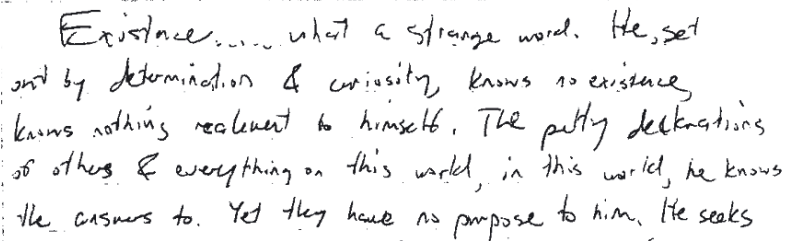 Existence..... what a strange word. He, set
out by determination & curiosity, knows no existence,
knows nothing realevent to himself. The petty declarations
of others & everything on this world, in this world, he knows
the answers to. Yet they have no purpose to him. He seeks